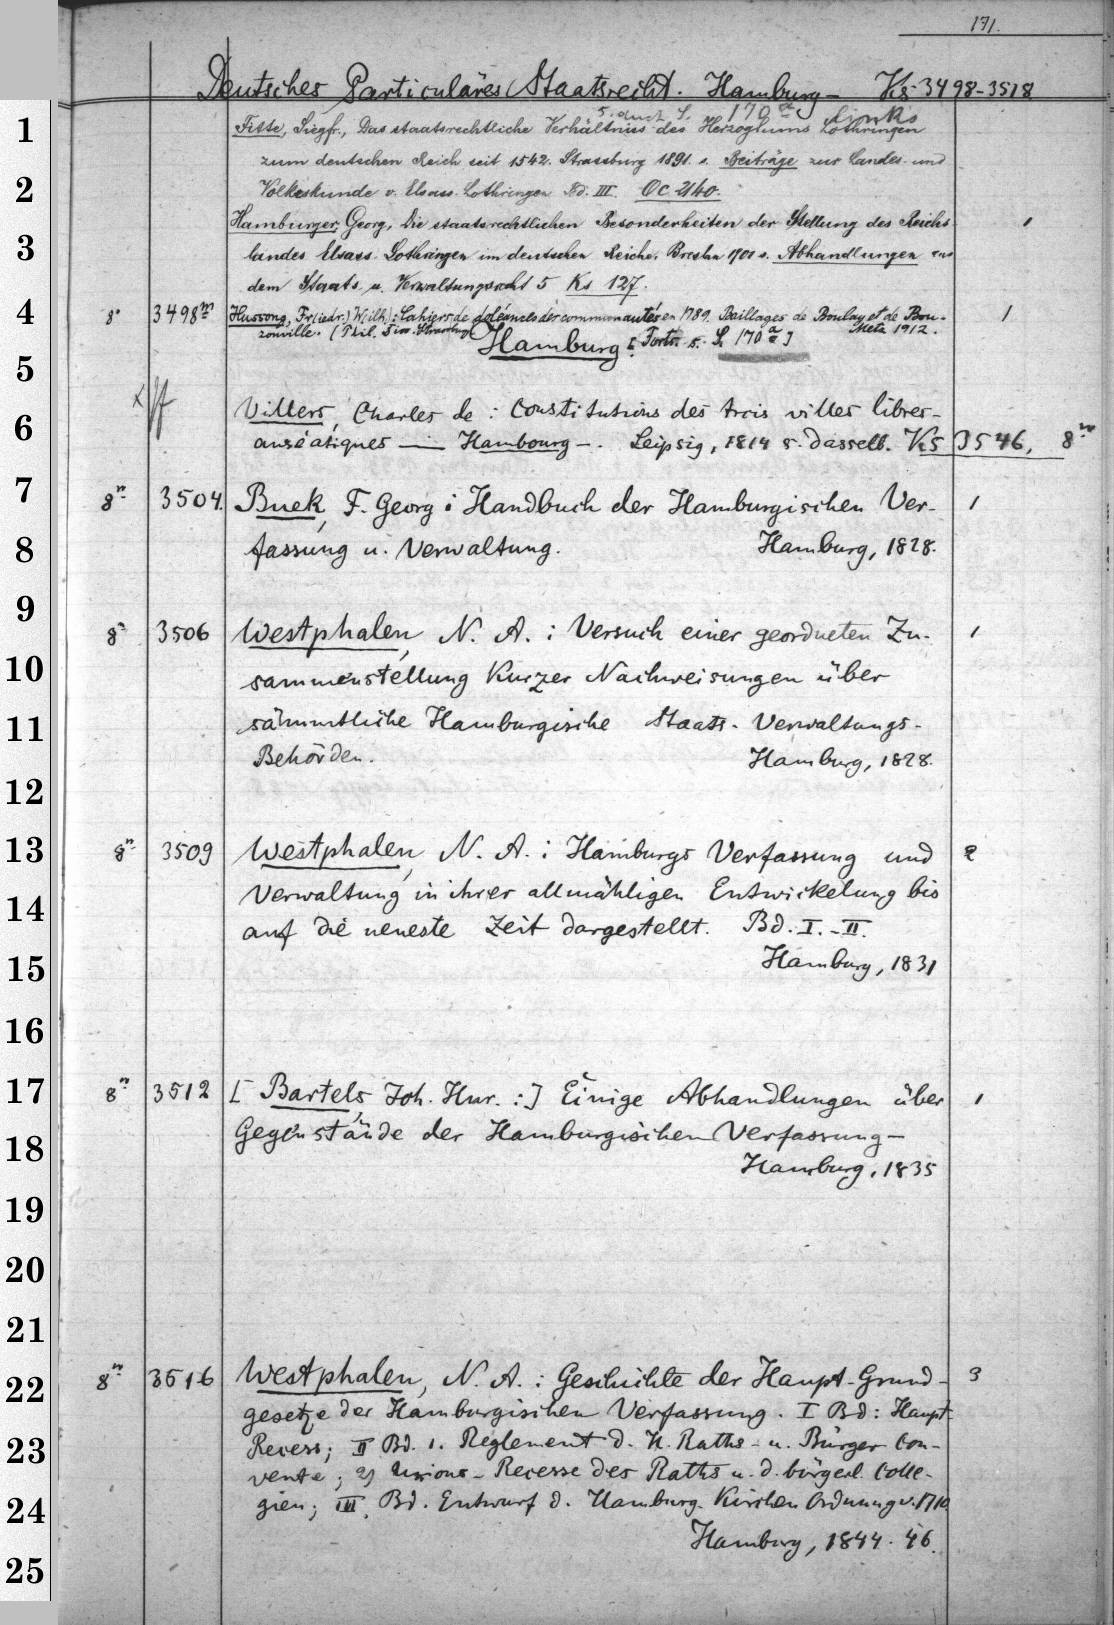 171.
Deutsches Particuläres Staatsrecht. Hamburg — Ks 3498-3518
s. auch S. 170 a links
Fitte, Siegfr., Das staatsrechtliche Verhältniss des Herzogtums Lothringen
zum deutschen Reich seit 1542. Strassburg 1891. s. Beiträge zur Landes- und
Volkeskunde v. Elsass-Lothringen Bd. III. Oc 2140.
Hamburger, Georg, Die staatsrechtlichen Besonderheiten der Stellung des Reichs- 1
landes Elsass-Lothringen im deutschen Reiche. Breslau 1901 s. Abhandlungen aus
dem Staats u. Verwaltungsrecht 5 Ks 127.
8° 3498m Hussong, Fr(iedr.) W(ilh.): Cahiers de doléances des communautés en 1789. Bailliages de Boulay et de Bou- 1
zonville. (Phil. Diss. Strassburg) Metz 1912.
Hamburg [Forts. s. S. 170 a]
Villers, Charles de: Constitutions des trois villes libres-
anséatiques — Hambourg —. Leipsig, 1814 s. dasselb. Ks 3546, 8n
8n 3504. Buek, F. Georg: Handbuch der Hamburgischen Ver- 1
fassung u. Verwaltung. Hamburg, 1828.
8n 3506 Westphalen, N. A.: Versuch einer geordneten Zu- 1
sammenstellung Kurzer Nachweisungen über
sämmtliche Hamburgische Staats-Verwaltungs-
Behörden. Hamburg, 1828.
8n 3509 Westphalen, N. A.: Hamburgs Verfassung und 2
Verwaltung in ihrer allmähligen Entwickelung bis
auf die neueste Zeit dargestellt. Bd. I.-II.
Hamburg, 1831
8n 3512 [Bartels, Joh. Hnr.:] Einige Abhandlungen über 1
Gegenstände der Hamburgischen Verfassung —
Hamburg, 1835
8n 3516 Westphalen, N. A.: Geschichte der Haupt-Grund- 3
gesetze der Hamburgischen Verfassung. I Bd: Haupt-
Recess; II Bd. 1. Reglement d. H. Raths- u. Bürger Con-
vente; 2) Unions-Recesse des Raths u. d. bürgerl. Colle-
gien; III. Bd. Entwurf d. Hamburg. Kirchen Ordnung v. 1710.
Hamburg, 1844-46.
1
2
3
4
5
6
7
8
9
10
11
12
13
14
15
16
17
18
19
20
21
22
23
24
25